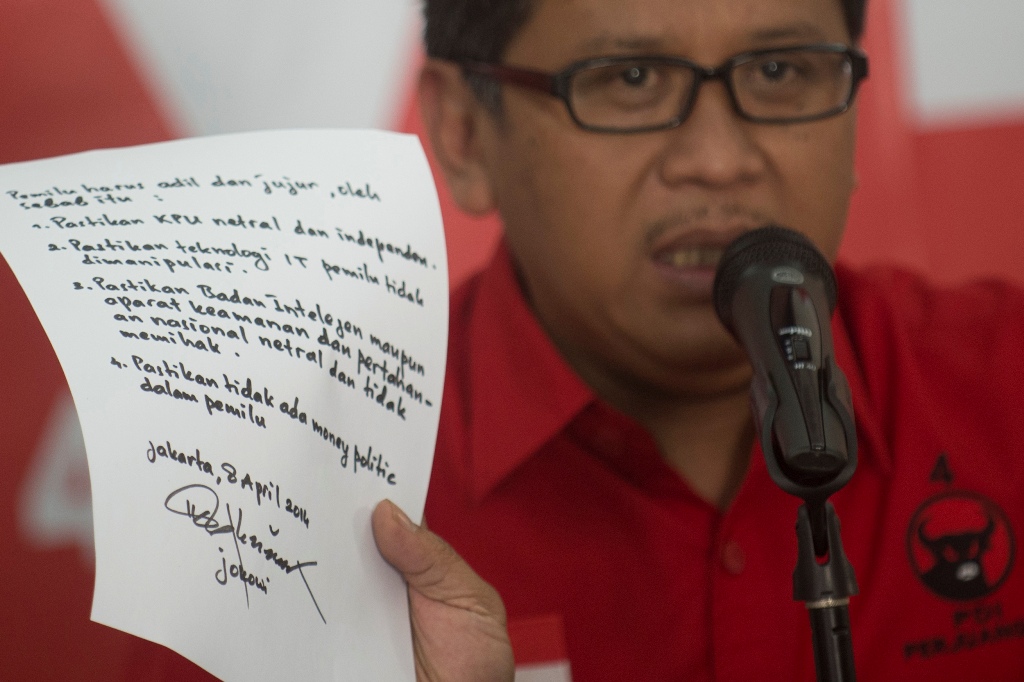 Pemilu harus adil dan jujur, oleh
sebab itu :
1. Pastikan KPU netral dan independen.
2. Pastikan teknologi IT pemilu tidak
dimanipulasi.
3. Pastikan Badan Intelejen maupun
aparat keamanan dan pertahan-
an nasional netral dan tidak
memihak.
4. Pastikan tidak ada money politic
dalam pemilu
Jakarta, 8 April 2014
jokowi
4
PDI
PERJUANG